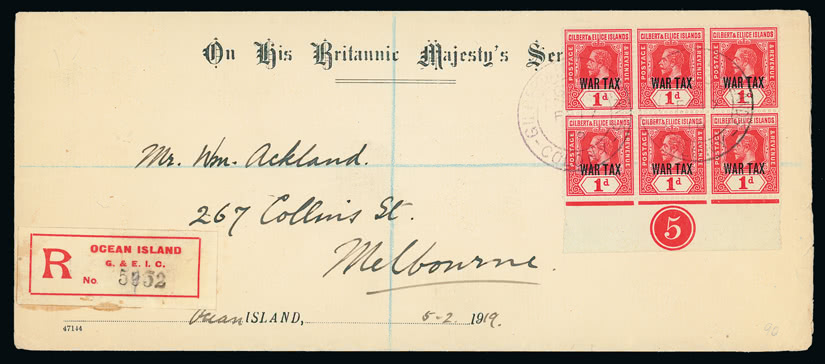 On His Britannic Majesty's Ser
GILBERT & ELLICE ISLANDS GILBERT & ELLICE ISLANDS GILBERT & ELLICE ISLANDS
POSTAGE & REVENUE POSTAGE & REVENUE POSTAGE & REVENUE
WAR TAX WAR TAX WAR TAX
1d 1d 1d
GILBERT & ELLICE ISLANDS GILBERT & ELLICE ISLANDS GILBERT & ELLICE ISLANDS
POSTAGE & REVENUE POSTAGE & REVENUE POSTAGE & REVENUE
WAR TAX WAR TAX WAR TAX
1d 1d 1d
5
Mr. Wm. Ackland.
267 Collins St.
Melbourne.
R OCEAN ISLAND
G. & E. I. C.
No. 5952
Ocean ISLAND, 5-2 1919.
47144
90